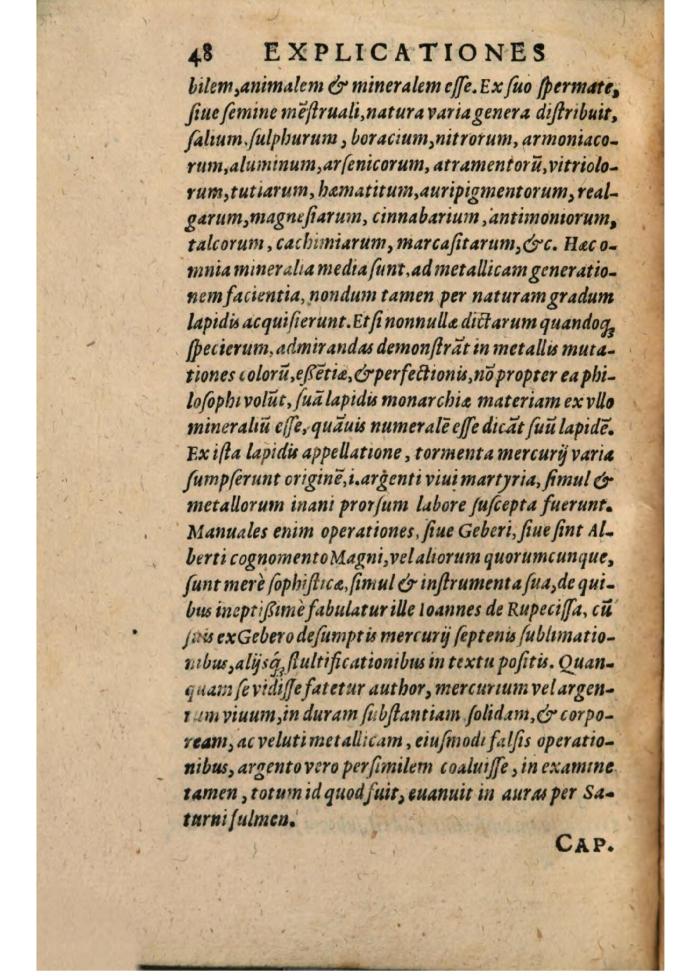 48 EXPLICATIONES
bilem,animalem & mineralem eſſe. Ex ſuo ſpermate,
ſiue ſemine mẽſtruali,natura varia genera diſtribuit,
ſalium, ſulphurum, boracium,nitrorum, armoniaco-
rum,aluminum,arſenicorum, atramentorũ,vitriolo-
rum,tutiarum, hæmatitum,auripigmentorum, real-
garum,magneſiarum, cinnabarium, antimoniorum,
talcorum, cachimiarum, marcaſitarum,&c. Hæc o-
mnia mineralia media ſunt,ad metallicam generatio-
nem facientia, nondum tamen per naturam gradum
lapidis acquiſierunt. Et ſi nonnullæ dictarum quandoq́ꝫ
ſpecierum, admirandas demonſtrãt in metallis muta-
tiones colorũ,eßẽtiæ,& perfectionis,nõ propter ea phi-
loſophi volũt, ſuã lapidis monarchiæ materiam ex vllo
mineraliũ eſſe, quãuis numeralẽ eſſe dicãt ſuũ lapidẽ.
Ex iſta lapidis appellatione, tormenta mercurij varia
ſumpſerunt originẽ,i.argenti viui martyria, ſimul &
metallorum inani prorſum labore ſuſcepta fuerunt.
Manuales enim operationes, ſiue Geberi, ſiue ſint Al-
berti cognomento Magni,vel aliorum quorumcunque,
ſunt merè ſophiſticæ,ſimul & inſtrumenta ſua,de qui-
bus ineptißimè fabulatur ille Ioannes de Rupeciſſa, cũ
ſuis ex Gebero deſumptis mercurij ſeptenis ſublimatio-
nibus,alijsq́ꝫ ſtultificationibus in textu poſitis. Quan-
quam ſe vidiſſe fatetur author, mercurium vel argen-
tum viuum,in duram ſubſtantiam ſolidam,& corpo-
ream, ac veluti metallicam, eiuſmodi falſis operatio-
nibus, argento vero perſimilem coaluiſſe, in examine
tamen, totum id quod fuit, euanuit in auras per Sa-
turni fulmen.
CAP.